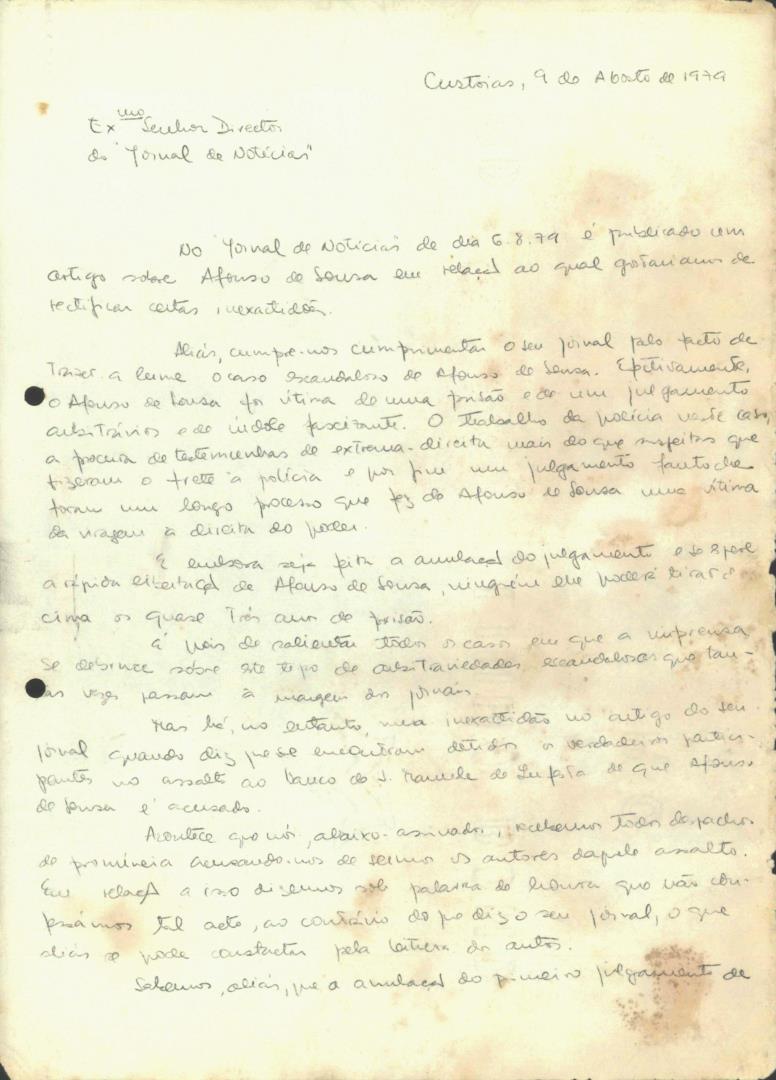 Custoias, 9 de Agosto de 1979
Exmo Senhor Director
do "Jornal de Notícias"
No "Jornal de Notícias" de dia 6.8.79 é publicado um
artigo sobre Afonso de Sousa em relação ao qual gostaríamos de
rectificar certas inexactidões.
Aliás, cumpre-nos cumprimentar o seu jornal pelo facto de
trazer a lume o caso escandaloso de Afonso de Sousa. Efectivamente,
o Afonso de Sousa foi vítima de uma prisão e de um julgamento
arbitrários e de índole fascizante. O trabalho da polícia neste caso,
a procura de testemunhas de extrema-direita mais do que suspeitas que
fizeram o frete à polícia e por fim um julgamento fantoche
foram um longo processo que fez do Afonso de Sousa uma vítima
da viragem à direita do poder.
E embora seja feita a anulação do julgamento e se espere
a rápida libertação de Afonso de Sousa, ninguém lhe poderá tirar de
cima os quase três anos de prisão.
É pois de salientar todos os casos em que a imprensa
se debruce sobre este tipo de arbitrariedades escandalosas que tan-
tas vezes passam à margem dos jornais.
Mas há, no entanto, uma inexactidão no artigo do seu
jornal quando diz que se encontram detidos os verdadeiros partici-
pantes no assalto ao banco de S. Mamede de Infesta de que Afonso
de Sousa é acusado.
Acontece que nós, abaixo-assinados, recebemos todos despachos
de pronúncia acusando-nos de sermos os autores daquele assalto.
Em relação a isso dizemos sob palavra de honra que não con-
fessámos tal acto, ao contrário do que diz o seu jornal, o que
aliás se pode constactar pela leitura dos autos.
Sabemos, aliás, que a anulação do primeiro julgamento de